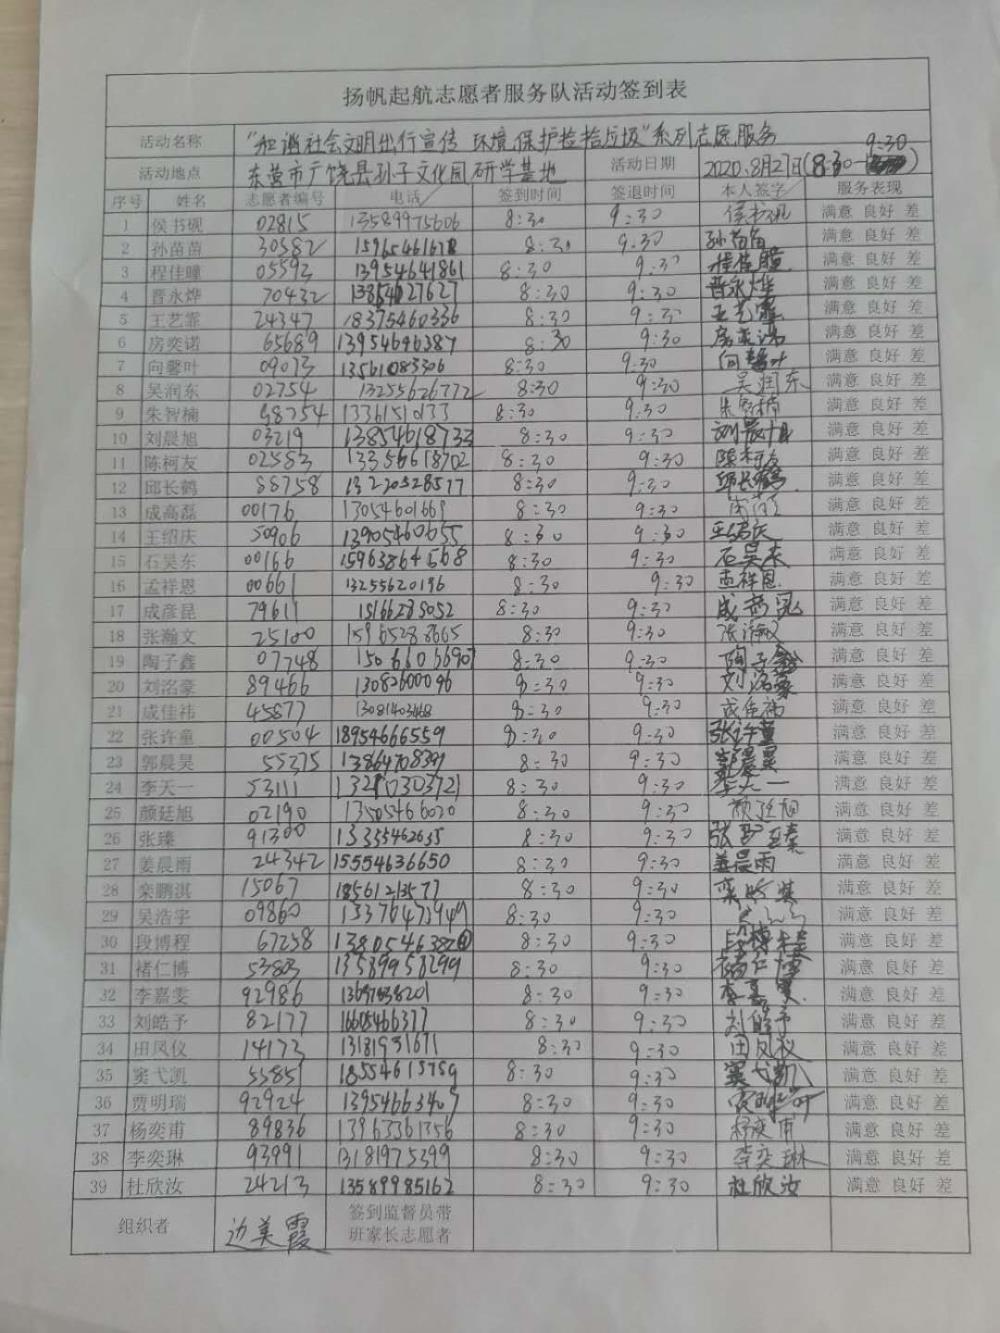 扬帆起航志愿者服务队活动签到表
活动名称 "和谐社会文明出行宣传 环境保护捡拾垃圾"系列志愿服务
活动地点 东营市广饶县孙子文化园研学基地 活动日期 2020.8月27日(8:30 9:30
序号 姓名 志愿者编号 电话 签到时间 签退时间 本人签字 服务表现
1 侯书砚 02815 13589975606 8:30 9:30 侯书砚 满意 良好 差
2 孙苗苗 30582 8:30 9:30 孙苗苗 满意 良好 差
3 程佳瞳 05593 13954641861 8:30 9:30 程佳瞳 满意 良好 差
4 晋永烨 70432 8:30 9:30 晋永烨 满意 良好 差
5 王艺霏 24347 18375460336 8:30 9:30 王艺霏 满意 良好 差
6 房奕诺 65689 13954646387 8:30 9:30 满意 良好 差
7 向馨叶 09073 13561083306 8:30 9:30 满意 良好 差
8 吴润东 02754 13255626772 8:30 9:30 吴润东 满意 良好 差
9 朱智楠 8:30 9:30 满意 良好 差
10 刘晨旭 03219 13854618733 8:30 9:30 刘晨旭 满意 良好 差
11 陈柯友 02583 13356618702 8:30 9:30 陈柯友 满意 良好 差
12 邱长鹤 88758 13220528577 8:30 9:30 邱长鹤 满意 良好 差
13 成高磊 00176 8:30 9:30 满意 良好 差
14 王绍庆 50906 13905460655 8:30 9:30 王绍庆 满意 良好 差
15 石昊东 00166 15963864568 8:30 9:30 石昊东 满意 良好 差
16 孟祥恩 00661 13255620196 8:30 9:30 孟祥恩 满意 良好 差
17 成彦昆 79611 8:30 9:30 满意 良好 差
18 张瀚文 25100 8:30 9:30 满意 良好 差
19 陶子鑫 07748 15066106690 8:30 9:30 陶子鑫 满意 良好 差
20 刘洺豪 89466 13082600096 8:30 9:30 刘洺豪 满意 良好 差
21 成佳祎 45877 8:30 9:30 成佳祎 满意 良好 差
22 张许童 00504 18954666559 8:30 9:30 张许童 满意 良好 差
23 郭晨昊 55375 8:30 9:30 郭晨昊 满意 良好 差
24 李天一 53111 8:30 9:30 李天一 满意 良好 差
25 颜廷旭 02190 13505466020 8:30 9:30 颜廷旭 满意 良好 差
26 张臻 91300 8:30 9:30 张臻 满意 良好 差
27 姜晨雨 24342 15554636650 8:30 9:30 姜晨雨 满意 良好 差
28 栾鹏淇 15067 18561213577 8:30 9:30 满意 良好 差
29 吴浩宇 09860 8:30 9:30 满意 良好 差
30 段博程 67258 8:30 9:30 段博程 满意 良好 差
31 褚仁博 53803 13589958299 8:30 9:30 褚仁博 满意 良好 差
32 李嘉雯 92986 8:30 9:30 李嘉雯 满意 良好 差
33 刘皓予 82177 16605466377 8:30 9:30 刘皓予 满意 良好 差
34 田凤仪 14173 8:30 9:30 田凤仪 满意 良好 差
35 窦弋凯 55851 18554613759 8:30 9:30 窦弋凯 满意 良好 差
36 贾明瑞 92924 13954663407 8:30 9:30 满意 良好 差
37 杨奕甫 89836 13963361356 8:30 9:30 杨奕甫 满意 良好 差
38 李奕琳 93991 13181975399 8:30 9:30 李奕琳 满意 良好 差
39 杜欣汝 24213 13589985162 8:30 9:30 杜欣汝 满意 良好 差
组织者 边美霞 签到监督员带
班家长志愿者